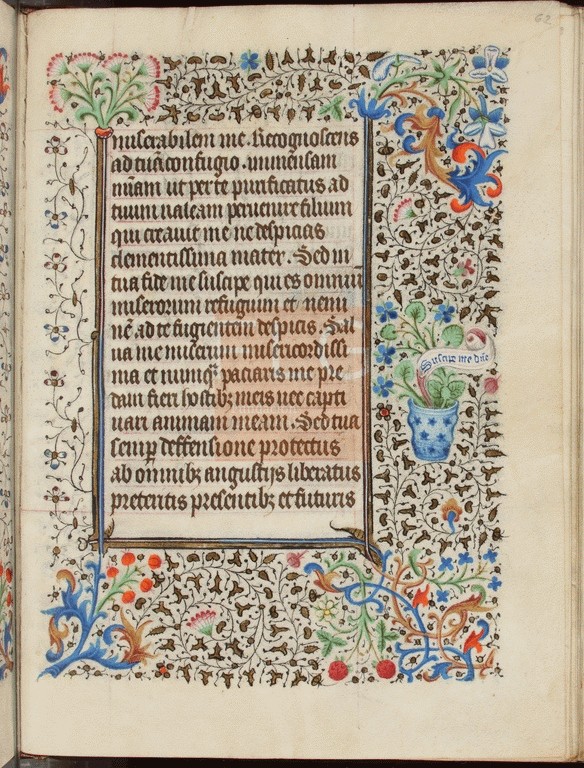 62
miserabilem me. Recognoscens
ad tuā confugio. immensam
mīam ut per te purificatus ad
tuum ualeam peruenire filium
qui creauit me ne despicias
clementissima mater. Sed in
tua fide me suscipe qui es omniū
miserorum refugium et nemi
nē ad te fugientem despicis. Sal
ua me miserum misericordissi
ma et numqꝫ paciaris me pre
dam fieri hostibꝫ meis nec capti
uari animam meam. Sed tua
semꝑ deffensione protectus
ab omnibꝫ angustijs liberatus
pretentis presentibꝫ et futuris
Suscipe me dn̄e